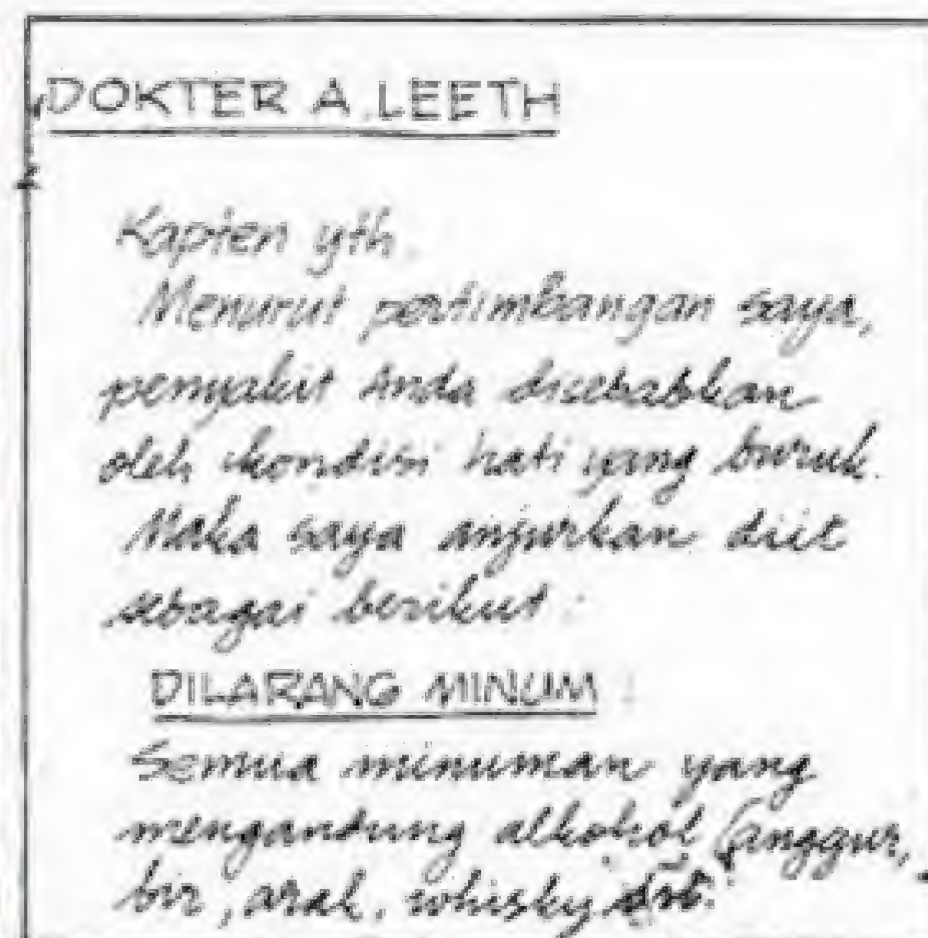 DOKTER A. LEETH
Kapten yth.
Menurut pertimbangan saya,
penyakit Anda disebabkan
oleh kondisi hati yang buruk.
Maka saya anjurkan diit
sebagai berikut :
DILARANG MINUM :
Semua minuman yang
mengandung alkohol (anggur,
bir, arak, whisky dst.